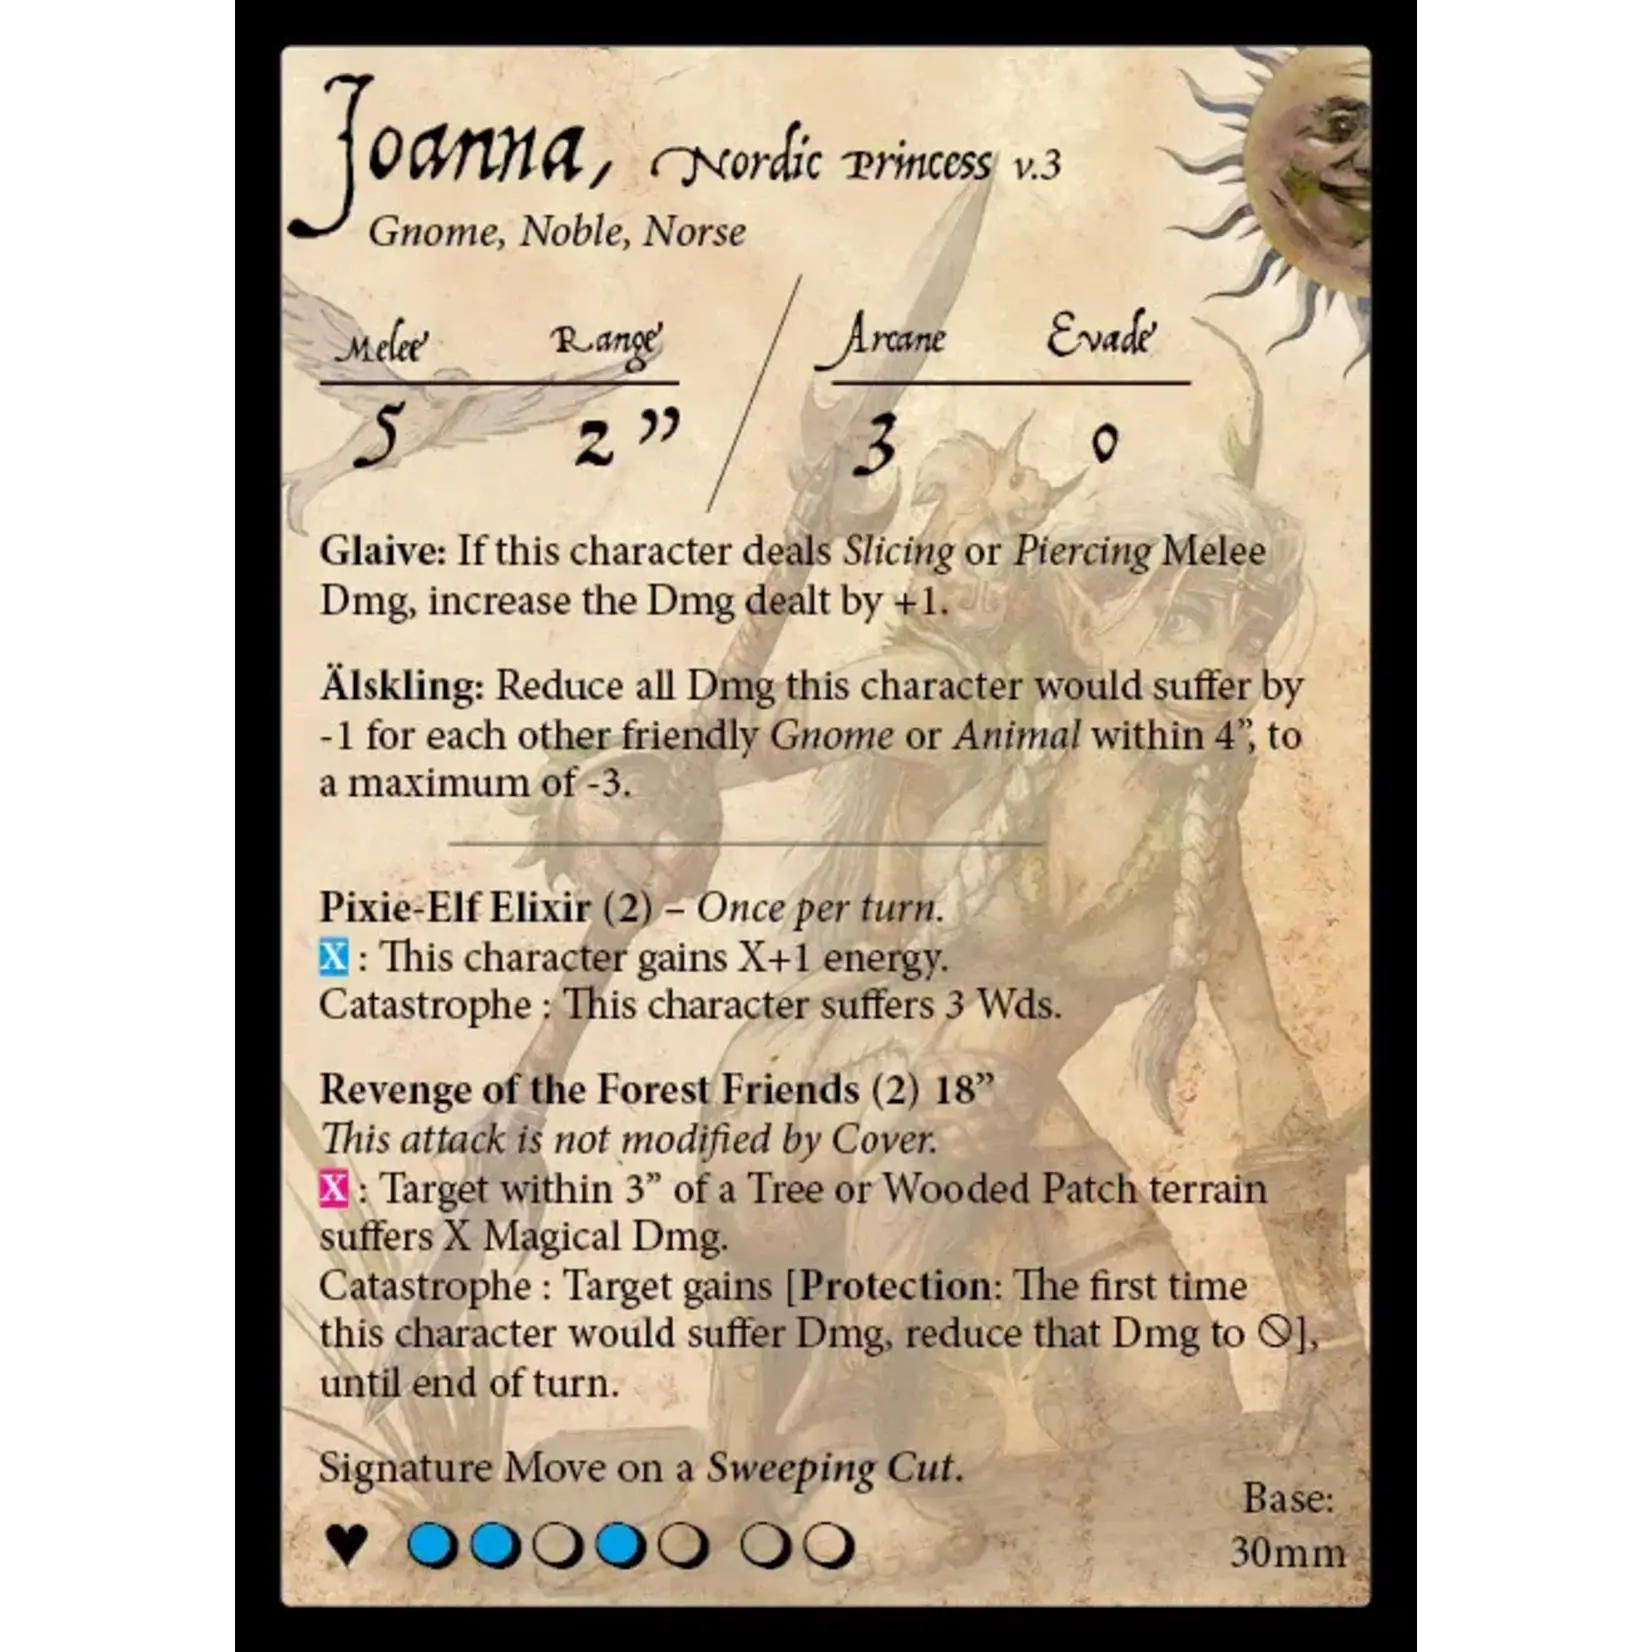 Joanna, Nordic Princess v.3
Gnome, Noble, Norse
Melee Range Arcane Evade
5 2” 3 0
Glaive: If this character deals Slicing or Piercing Melee
Dmg, increase the Dmg dealt by +1.
Älskling: Reduce all Dmg this character would suffer by
-1 for each other friendly Gnome or Animal within 4”, to
a maximum of -3.
Pixie-Elf Elixir (2) – Once per turn.
X : This character gains X+1 energy.
Catastrophe : This character suffers 3 Wds.
Revenge of the Forest Friends (2) 18”
This attack is not modified by Cover.
X : Target within 3” of a Tree or Wooded Patch terrain
suffers X Magical Dmg.
Catastrophe : Target gains [Protection: The first time
this character would suffer Dmg, reduce that Dmg to 🛇],
until end of turn.
Signature Move on a Sweeping Cut.
Base:
30mm